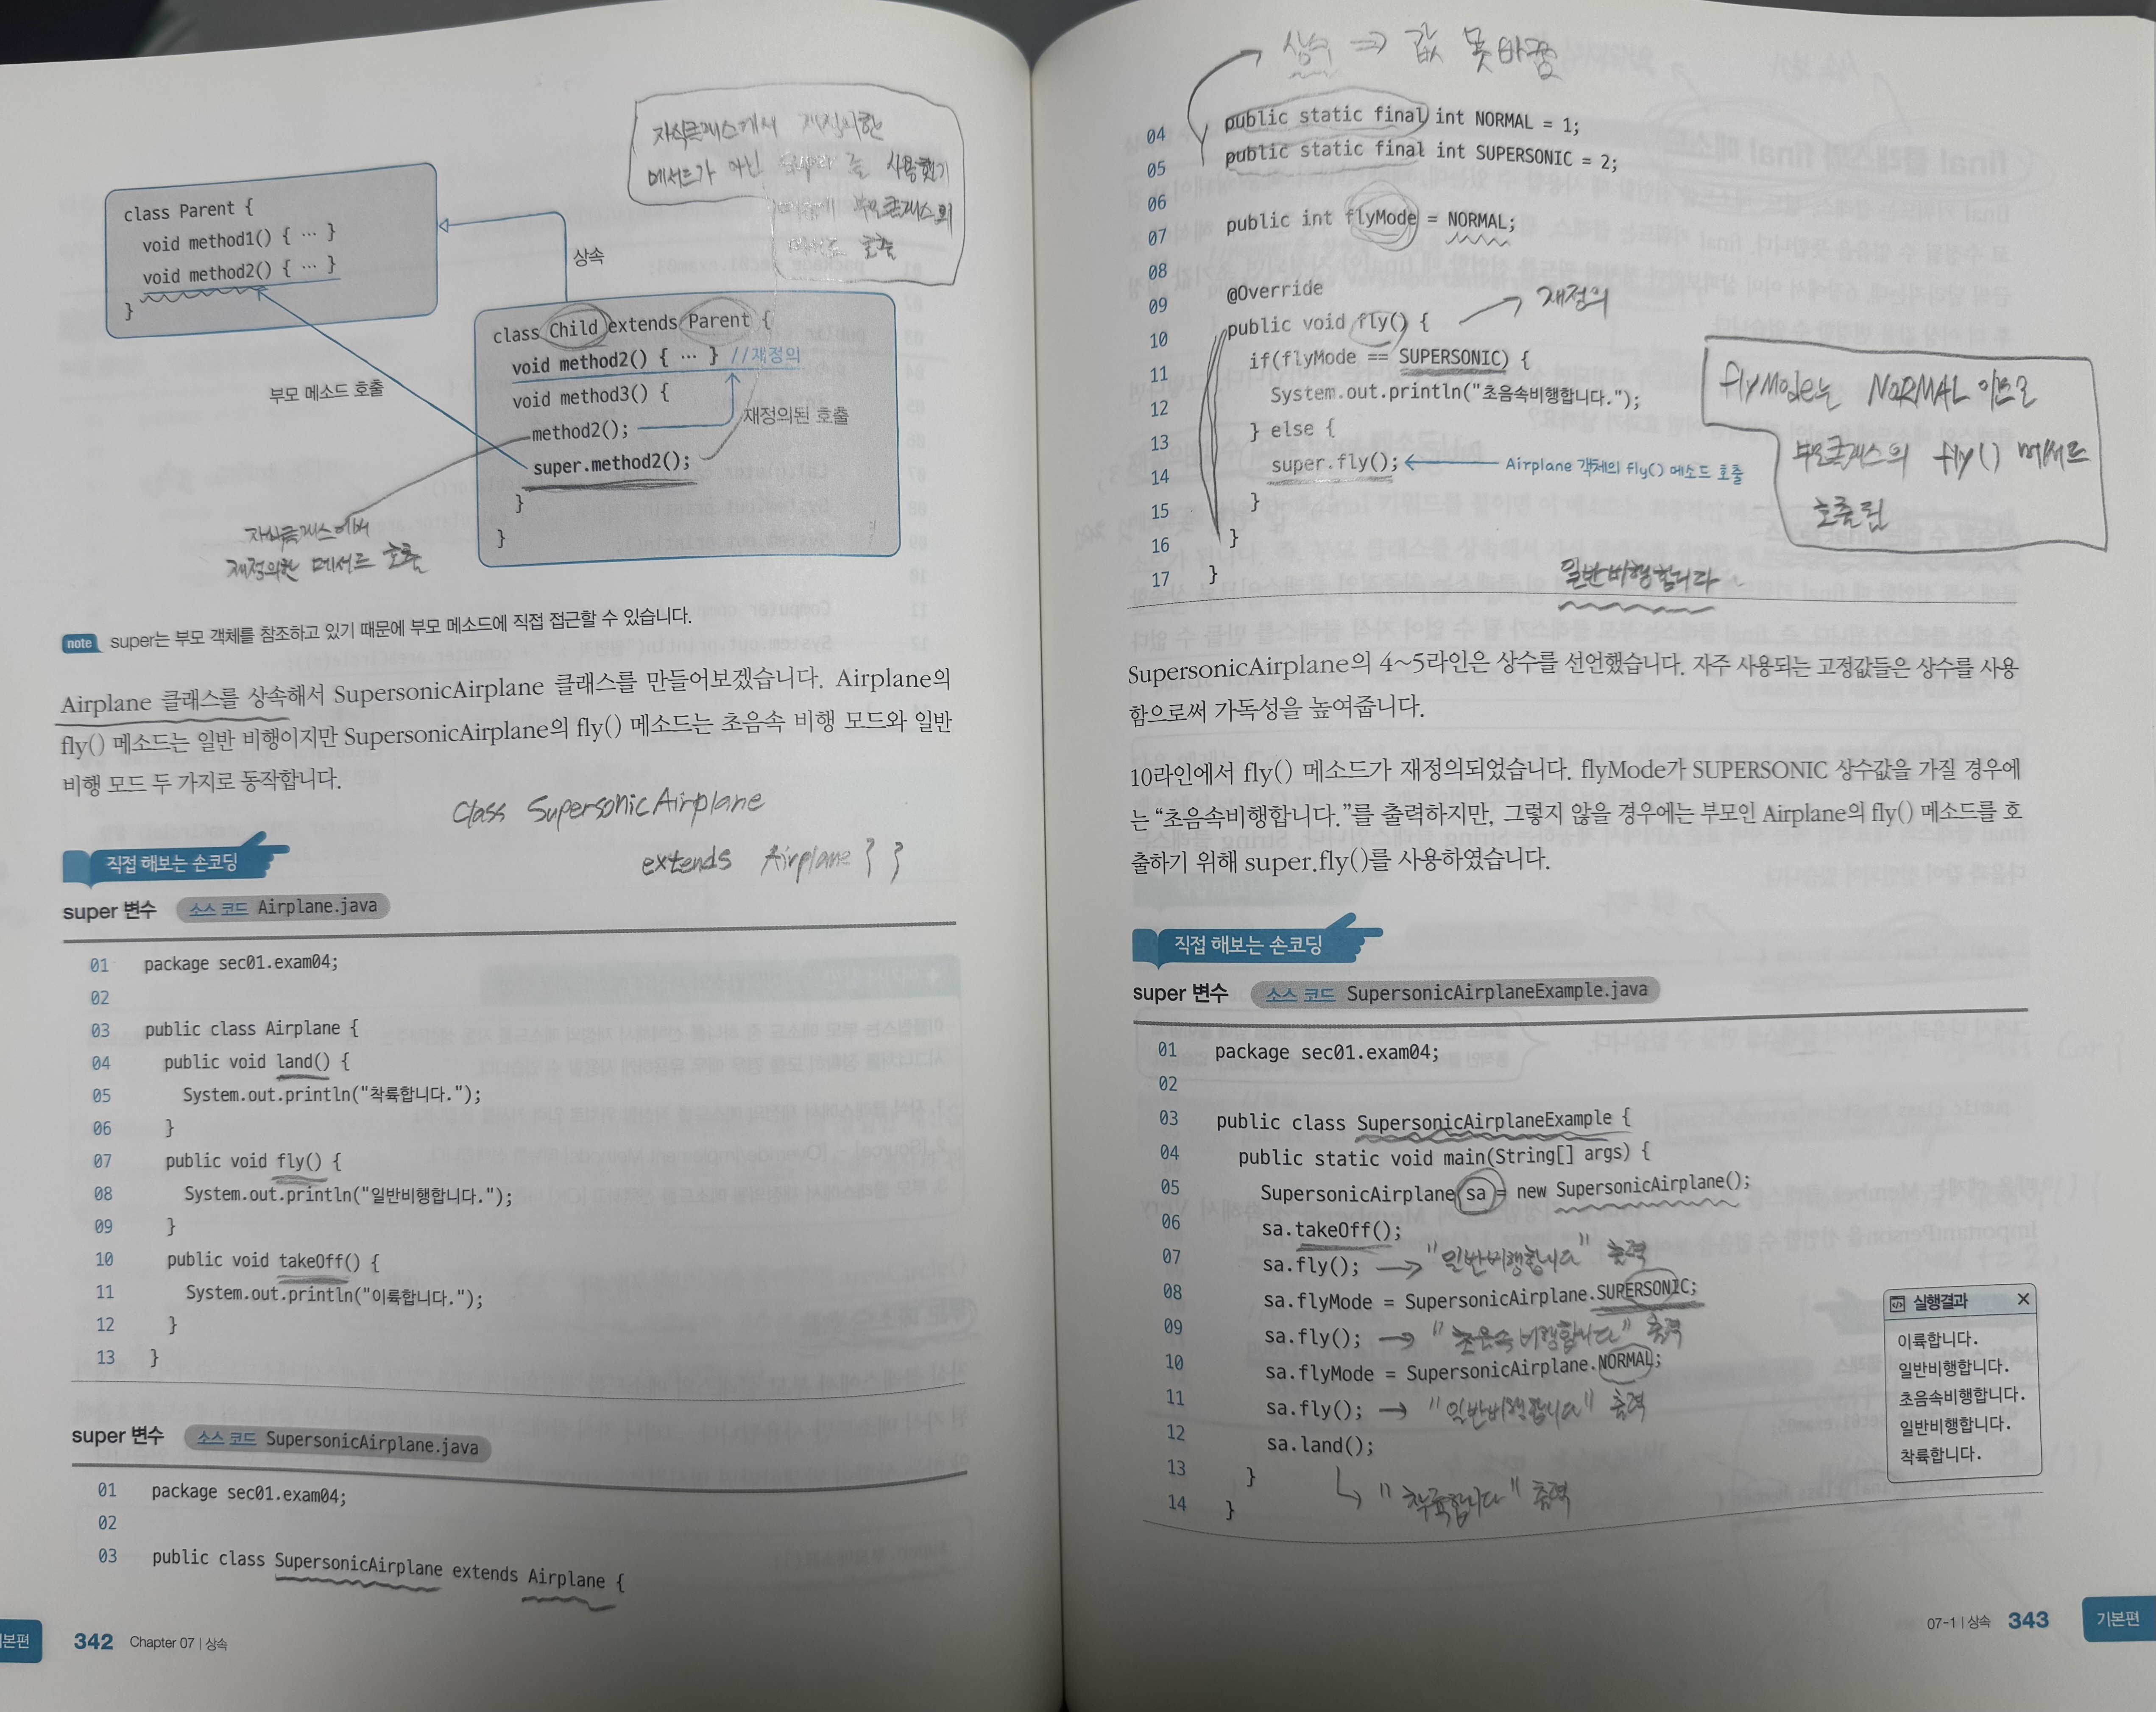 자식클래스에서 재정의한
메서드가 아닌 super 를 사용했기
때문에 부모클래스의
메서드 호출
class Parent {
void method1() { … }
void method2() { … }
}
상속
class Child extends Parent {
void method2() { … } //재정의
void method3() {
method2();
super.method2();
}
}
부모 메소드 호출
재정의된 호출
자식클래스에서
재정의한 메서드 호출
note super는 부모 객체를 참조하고 있기 때문에 부모 메소드에 직접 접근할 수 있습니다.
Airplane 클래스를 상속해서 SupersonicAirplane 클래스를 만들어보겠습니다. Airplane의
fly() 메소드는 일반 비행이지만 SupersonicAirplane의 fly() 메소드는 초음속 비행 모드와 일반
비행 모드 두 가지로 동작합니다.
class SupersonicAirplane
extends Airplane { }
직접 해보는 손코딩
super 변수 소스 코드 Airplane.java
01 package sec01.exam04;
02
03 public class Airplane {
04 public void land() {
05 System.out.println("착륙합니다.");
06 }
07 public void fly() {
08 System.out.println("일반비행합니다.");
09 }
10 public void takeOff() {
11 System.out.println("이륙합니다.");
12 }
13 }
super 변수 소스 코드 SupersonicAirplane.java
01 package sec01.exam04;
02
03 public class SupersonicAirplane extends Airplane {
본편 342 Chapter 07 | 상속
상수 ⇒ 값 못바꿈
04 public static final int NORMAL = 1;
05 public static final int SUPERSONIC = 2;
06
07 public int flyMode = NORMAL;
08
09 @Override
10 public void fly() {
재정의
11 if(flyMode == SUPERSONIC) {
12 System.out.println("초음속비행합니다.");
13 } else {
14 super.fly(); Airplane 객체의 fly() 메소드 호출
15 }
16 }
17 }
flyMode는 NORMAL 이므로
부모클래스의 fly() 메서드
호출됨
일반비행합니다
SupersonicAirplane의 4~5라인은 상수를 선언했습니다. 자주 사용되는 고정값들은 상수를 사용
함으로써 가독성을 높여줍니다.
10라인에서 fly() 메소드가 재정의되었습니다. flyMode가 SUPERSONIC 상수값을 가질 경우에
는 “초음속비행합니다.”를 출력하지만, 그렇지 않을 경우에는 부모인 Airplane의 fly() 메소드를 호
출하기 위해 super.fly()를 사용하였습니다.
직접 해보는 손코딩
super 변수 소스 코드 SupersonicAirplaneExample.java
01 package sec01.exam04;
02
03 public class SupersonicAirplaneExample {
04 public static void main(String[] args) {
05 SupersonicAirplane sa = new SupersonicAirplane();
06 sa.takeOff();
07 sa.fly(); → "일반비행합니다" 출력
08 sa.flyMode = SupersonicAirplane.SUPERSONIC;
09 sa.fly(); → "초음속비행합니다" 출력
10 sa.flyMode = SupersonicAirplane.NORMAL;
11 sa.fly(); → "일반비행합니다" 출력
12 sa.land();
13 }
14 }
"착륙합니다" 출력
실행결과 ×
이륙합니다.
일반비행합니다.
초음속비행합니다.
일반비행합니다.
착륙합니다.
07-1 | 상속 343 기본편